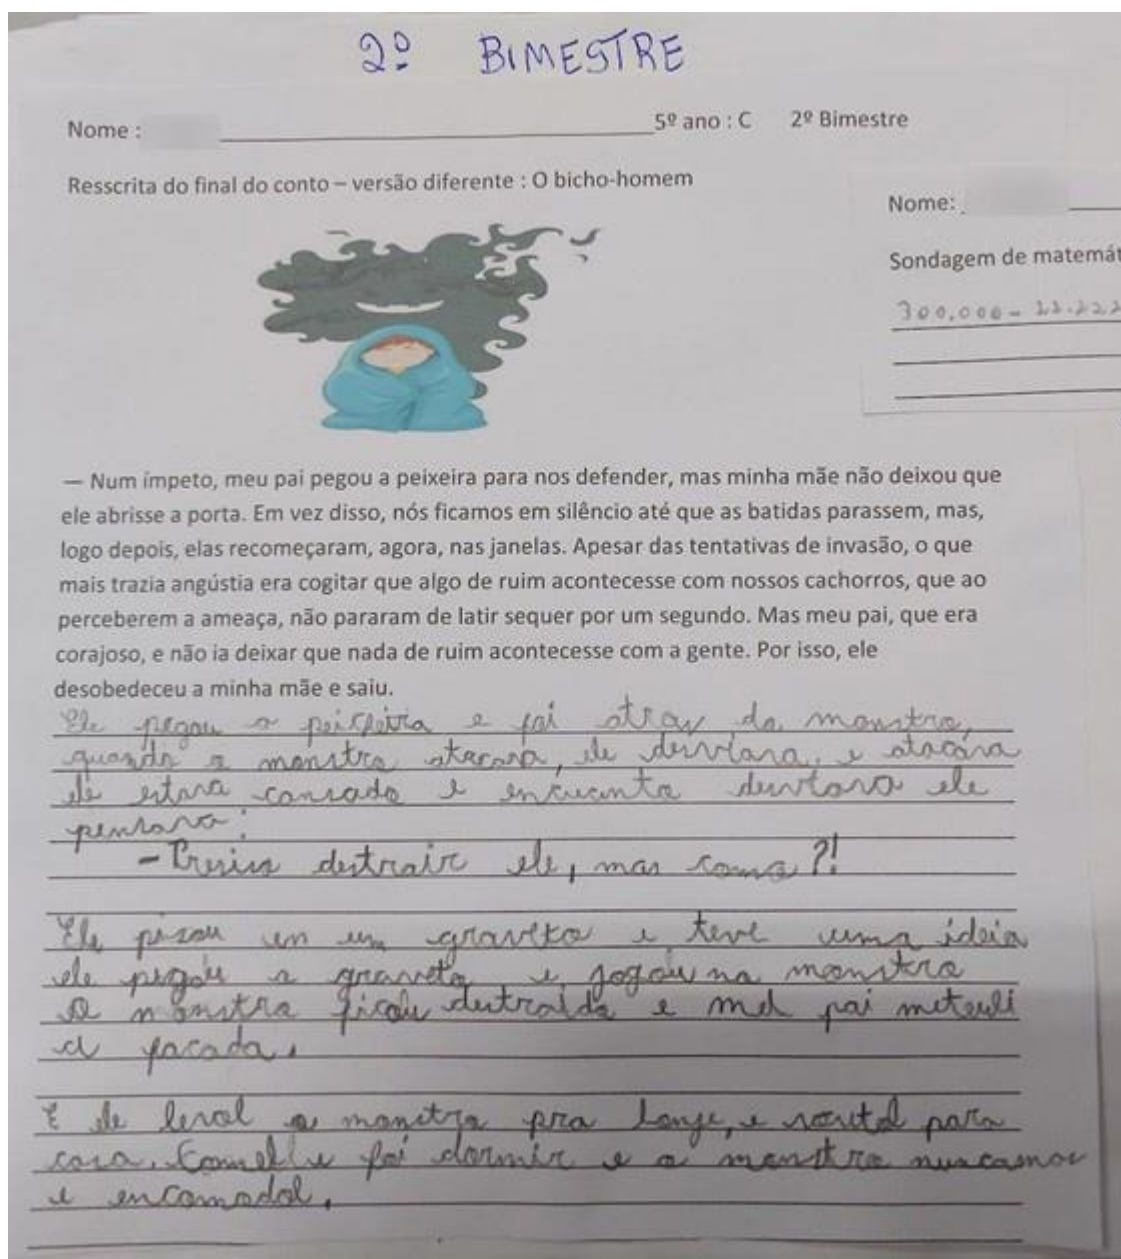 2º BIMESTRE
Nome : 5º ano : C 2º Bimestre
Resscrita do final do conto – versão diferente : O bicho-homem
Nome:
Sondagem de matemát
300,000 - 22.222
— Num ímpeto, meu pai pegou a peixeira para nos defender, mas minha mãe não deixou que
ele abrisse a porta. Em vez disso, nós ficamos em silêncio até que as batidas parassem, mas,
logo depois, elas recomeçaram, agora, nas janelas. Apesar das tentativas de invasão, o que
mais trazia angústia era cogitar que algo de ruim acontecesse com nossos cachorros, que ao
perceberem a ameaça, não pararam de latir sequer por um segundo. Mas meu pai, que era
corajoso, e não ia deixar que nada de ruim acontecesse com a gente. Por isso, ele
desobedeceu a minha mãe e saiu.
Ele pegou a e foi atrav do monstro,
quando o monstro atacava, ele desviava, e atacava
ele estava cansado e encuanto desviava ele
pensava:
- Preciso distrair ele, mas como?!
Ele pisou en um graveto e teve uma ideia
ele pegou o graveto e jogou no monstro
O monstro ficou distraido e meu pai meteuli
a facada.
E ele levol o monstro pra longe, e voutol para
casa. e foi dormir e o monstro nuncamas
encomodol.